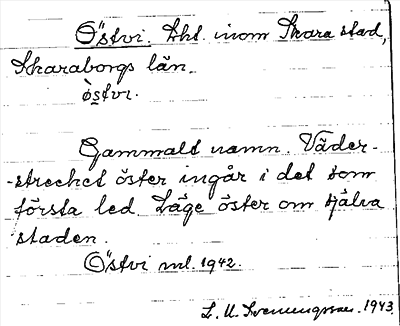 Östvi. Lht. inom Skara stad,
Skaraborgs län.
ös̩tvi.
Gammalt namn. Väder-
-strecket öster ingår i det som
första led. Läge öster om själva
staden.
Östvi ml. 1942.
L. U. Svenungsson. 1943.